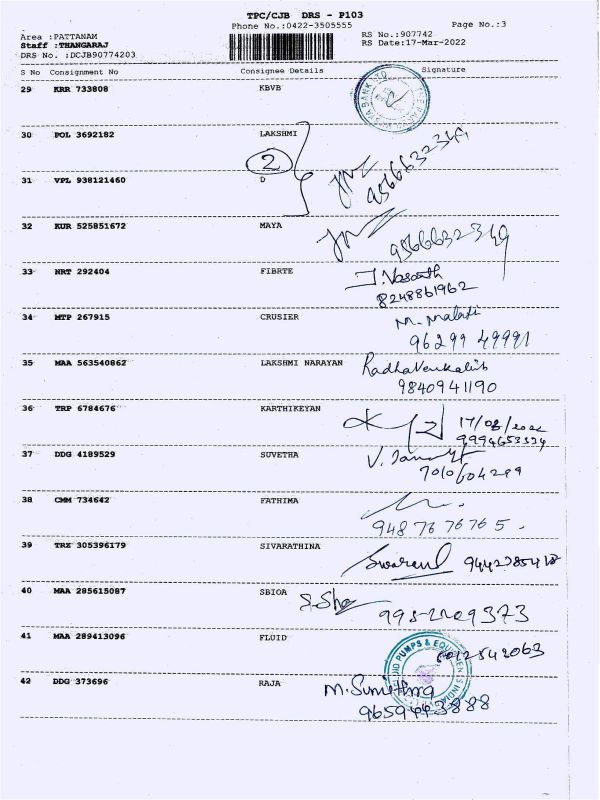 TPC/CJB DRS - P103
Phone No.:0422-3505555
Page No.:3
Area :PATTANAM
Staff :THANGARAJ
DRS No. :DCJB90774203
RS No.:907742
RS Date:17-Mar-2022
S No Consignment No Consignee Details Signature
29 KRR 733808 KBVB
30 POL 3692182 LAKSHMI
2
9566632349
31 VPL 938121460 D
32 KUR 525851672 MAYA
9566632349
33 NRT 292404 FIBRTE
J. Vasanth
8248861962
34 MTP 267915 CRUSIER
M. Malathi
96299 49991
35 MAA 563540862 LAKSHMI NARAYAN
9840941190
36 TRP 6784676 KARTHIKEYAN
17/03/2022
37 DDG 4189529 SUVETHA
7010604299
38 CMM 734642 FATHIMA
948 76 76765.
39 TRZ 305396179 SIVARATHINA
40 MAA 285615087 SBIOA
41 MAA 289413096 FLUID
FLUID PUMPS & EQUIPMENTS INDIA
42 DDG 373696 RAJA
9659443888